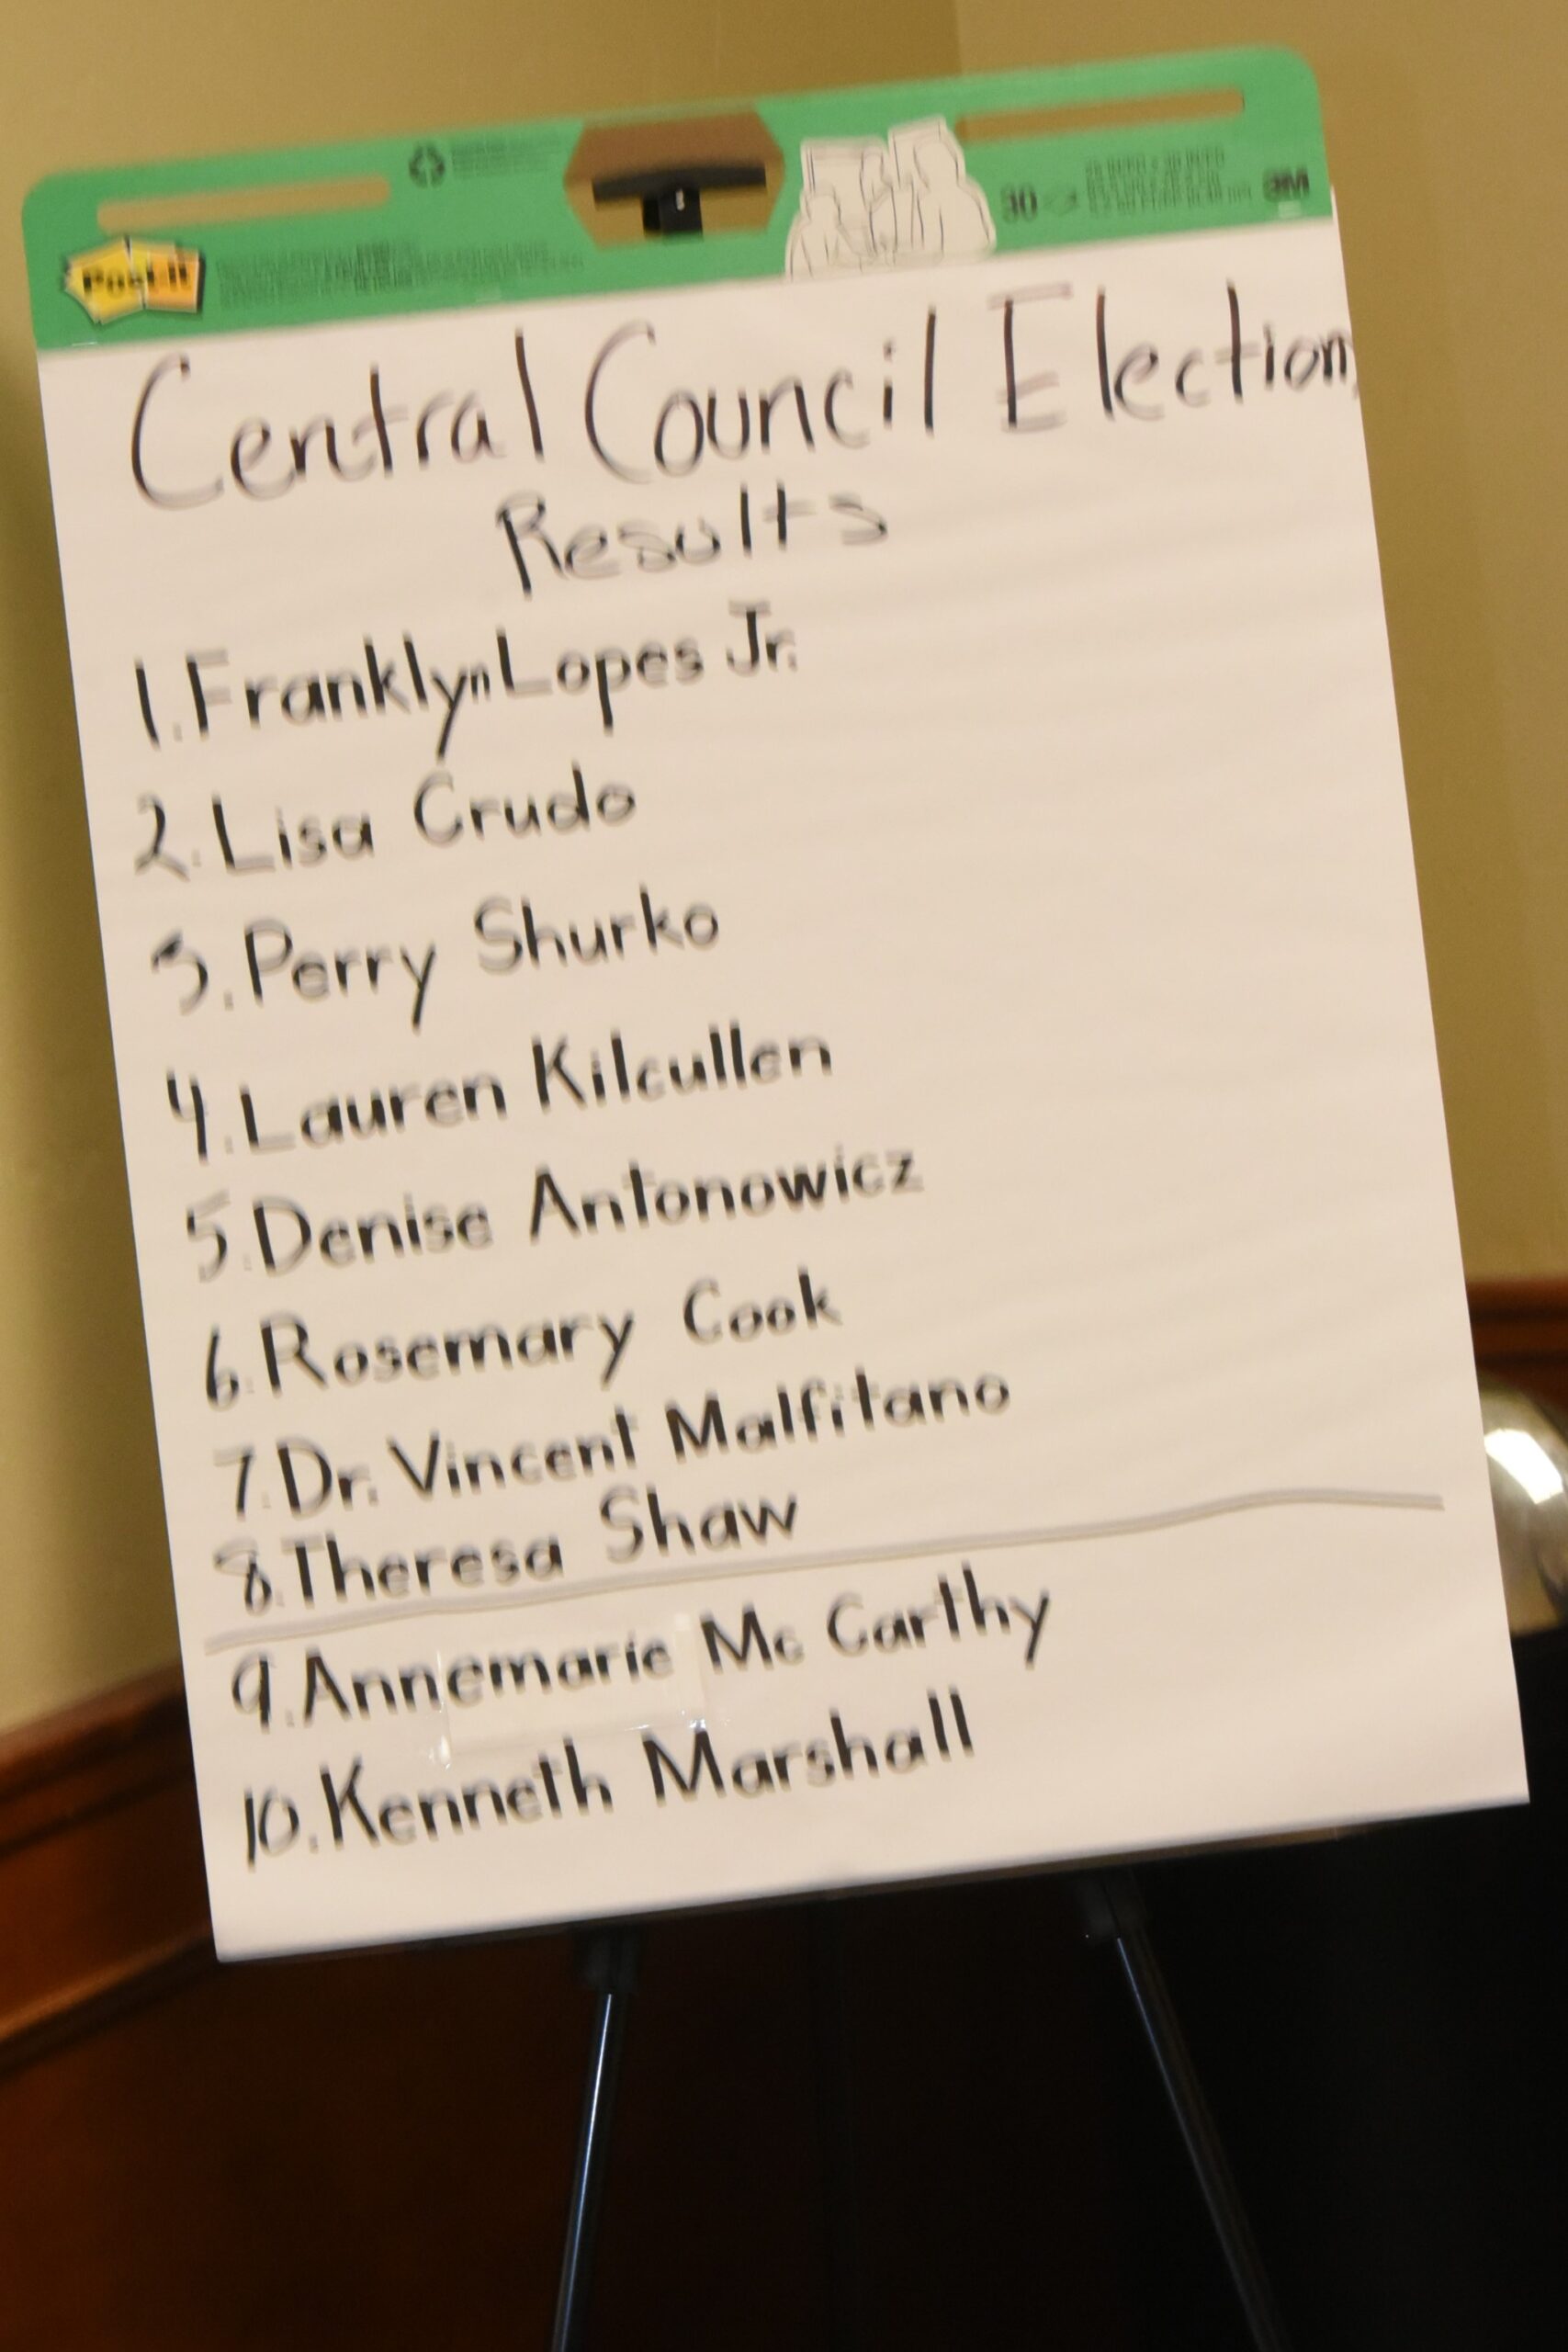 Post-it
30
3M
Central Council Election
Results
1. Franklyn Lopes Jr.
2. Lisa Crudo
3. Perry Shurko
4. Lauren Kilcullen
5. Denise Antonowicz
6. Rosemary Cook
7. Dr. Vincent Malfitano
8. Theresa Shaw
9. Annemarie Mc Carthy
10. Kenneth Marshall